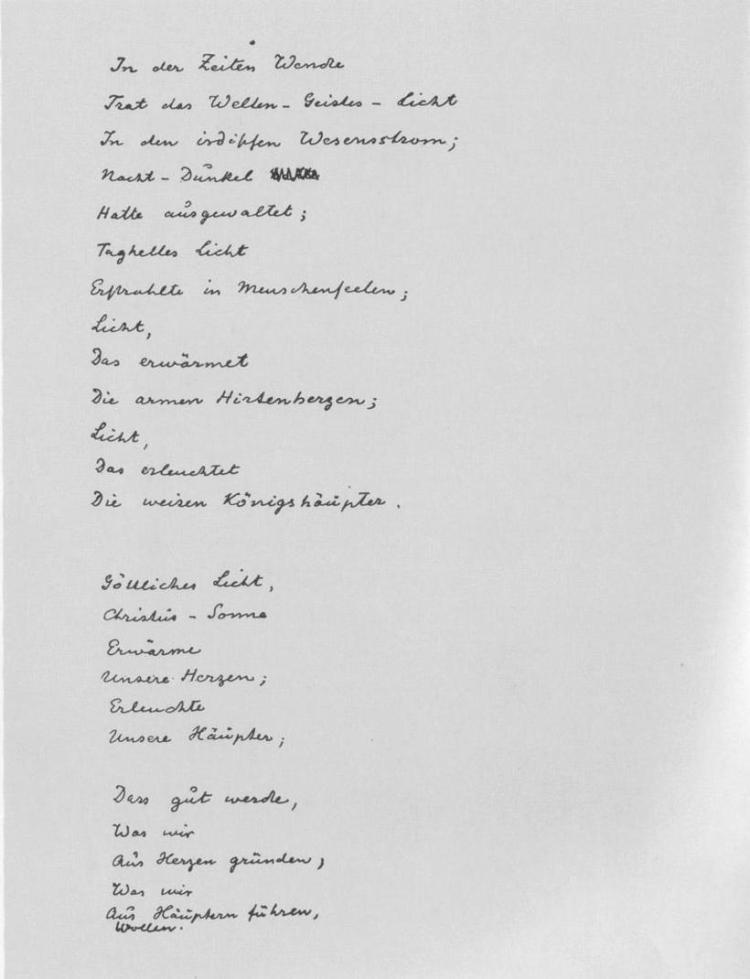 In der Zeiten Wende
Trat das Welten-Geistes-Licht
In den irdischen Wesensstrom;
Nacht-Dunkel
Hatte ausgewaltet;
Taghelles Licht
Erstrahlte in Menschenseelen;
Licht,
Das erwärmet
Die armen Hirtenherzen;
Licht,
Das erleuchtet
Die weisen Königshäupter.
Göttliches Licht,
Christus-Sonne
Erwärme
Unsere Herzen;
Erleuchte
Unsere Häupter;
Dass gut werde,
Was wir
Aus Herzen gründen,
Was wir
Aus Häuptern führen,
Wollen.